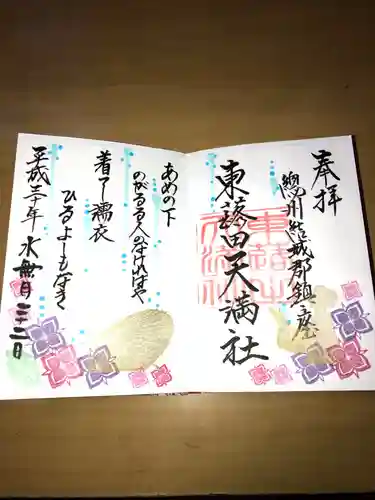 奉拝
總州結城郡鎮座
東蕗田天満社
あめの下
のがるる人のなければや
着てし濡衣
ひるよしもなき
平成三十年水無月二十二日